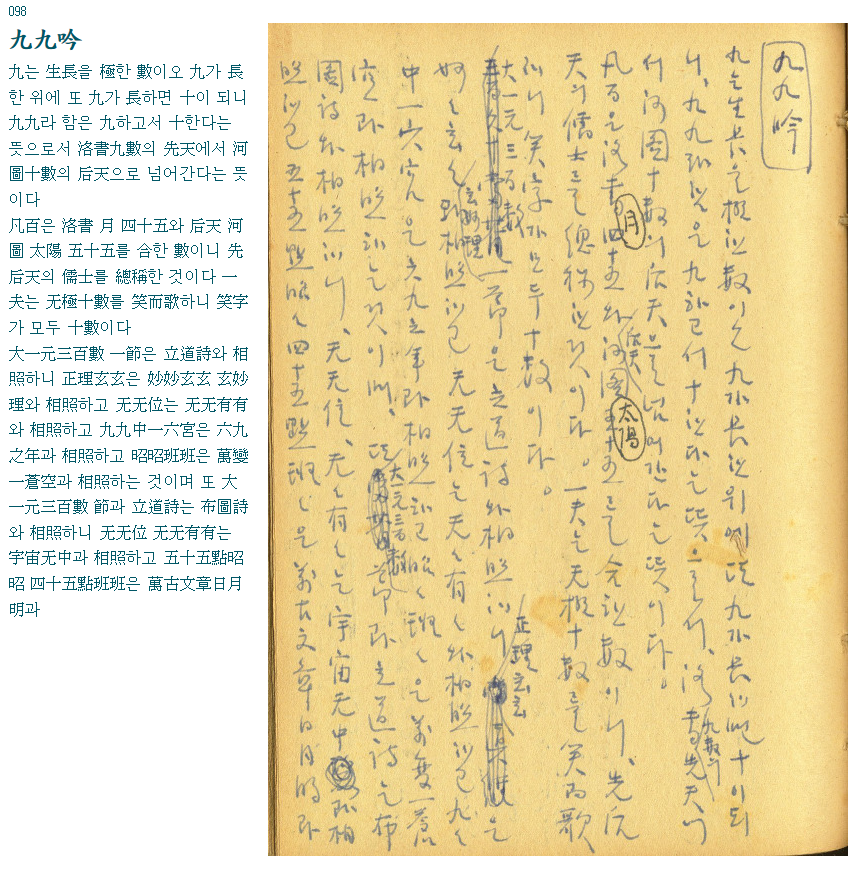 098
九九吟
九는 生長을 極한 數이오 九가 長
한 위에 또 九가 長하면 十이 되니
九九라 함은 九하고서 十한다는
뜻으로서 洛書九數의 先天에서 河
圖十數의 后天으로 넘어간다는 뜻
이다
凡百은 洛書 月 四十五와 后天 河
圖 太陽 五十五를 合한 數이니 先
后天의 儒士를 總稱한 것이다 一
夫는 无極十數를 笑而歌하니 笑字
가 모두 十數이다
大一元三百數 一節은 立道詩와 相
照하니 正理玄玄은 妙妙玄玄 玄妙
理와 相照하고 无无位는 无无有有
와 相照하고 九九中一六宮은 六九
之年과 相照하고 昭昭班班은 萬變
一蒼空과 相照하는 것이며 또 大
一元三百數 節과 立道詩는 布圖詩
와 相照하니 无无位 无无有有는
字宙无中과 相照하고 五十五點昭
昭 四十五點班班은 萬古文章日月
明과
九九吟
九는 生長을 極한 數이오 九가 長한 위에 또 九가 長하면 十이 되
니, 九九라 함은 九하고서 十한다는 뜻으로서, 洛書九數의 先天에
서 河圖十數의 后天으로 넘어간다는 뜻이다。
凡百은 洛書 月 四十五와 后天 河圖 太陽 五十五를 合한 數이니, 先后
天의 儒士를 總稱한 것이다。一夫는 无極十數를 笑而歌
하니 笑字가 모두 十數이다。
大一元三百數 一節은 立道詩와 相照하니 正理玄玄은
妙妙玄玄 玄妙理와 相照하고 无无位는 无无有有와 相照하고 九九
中一六宮은 六九之年과 相照하고 昭昭班班은 萬變一蒼
空과 相照하는 것이며, 또 大一元三百數 節과 立道詩는 布
圖詩와 相照하니, 无无位, 无无有有는 宇宙无中과 相
照하고 五十五點昭昭 四十五點班班은 萬古文章日月明과